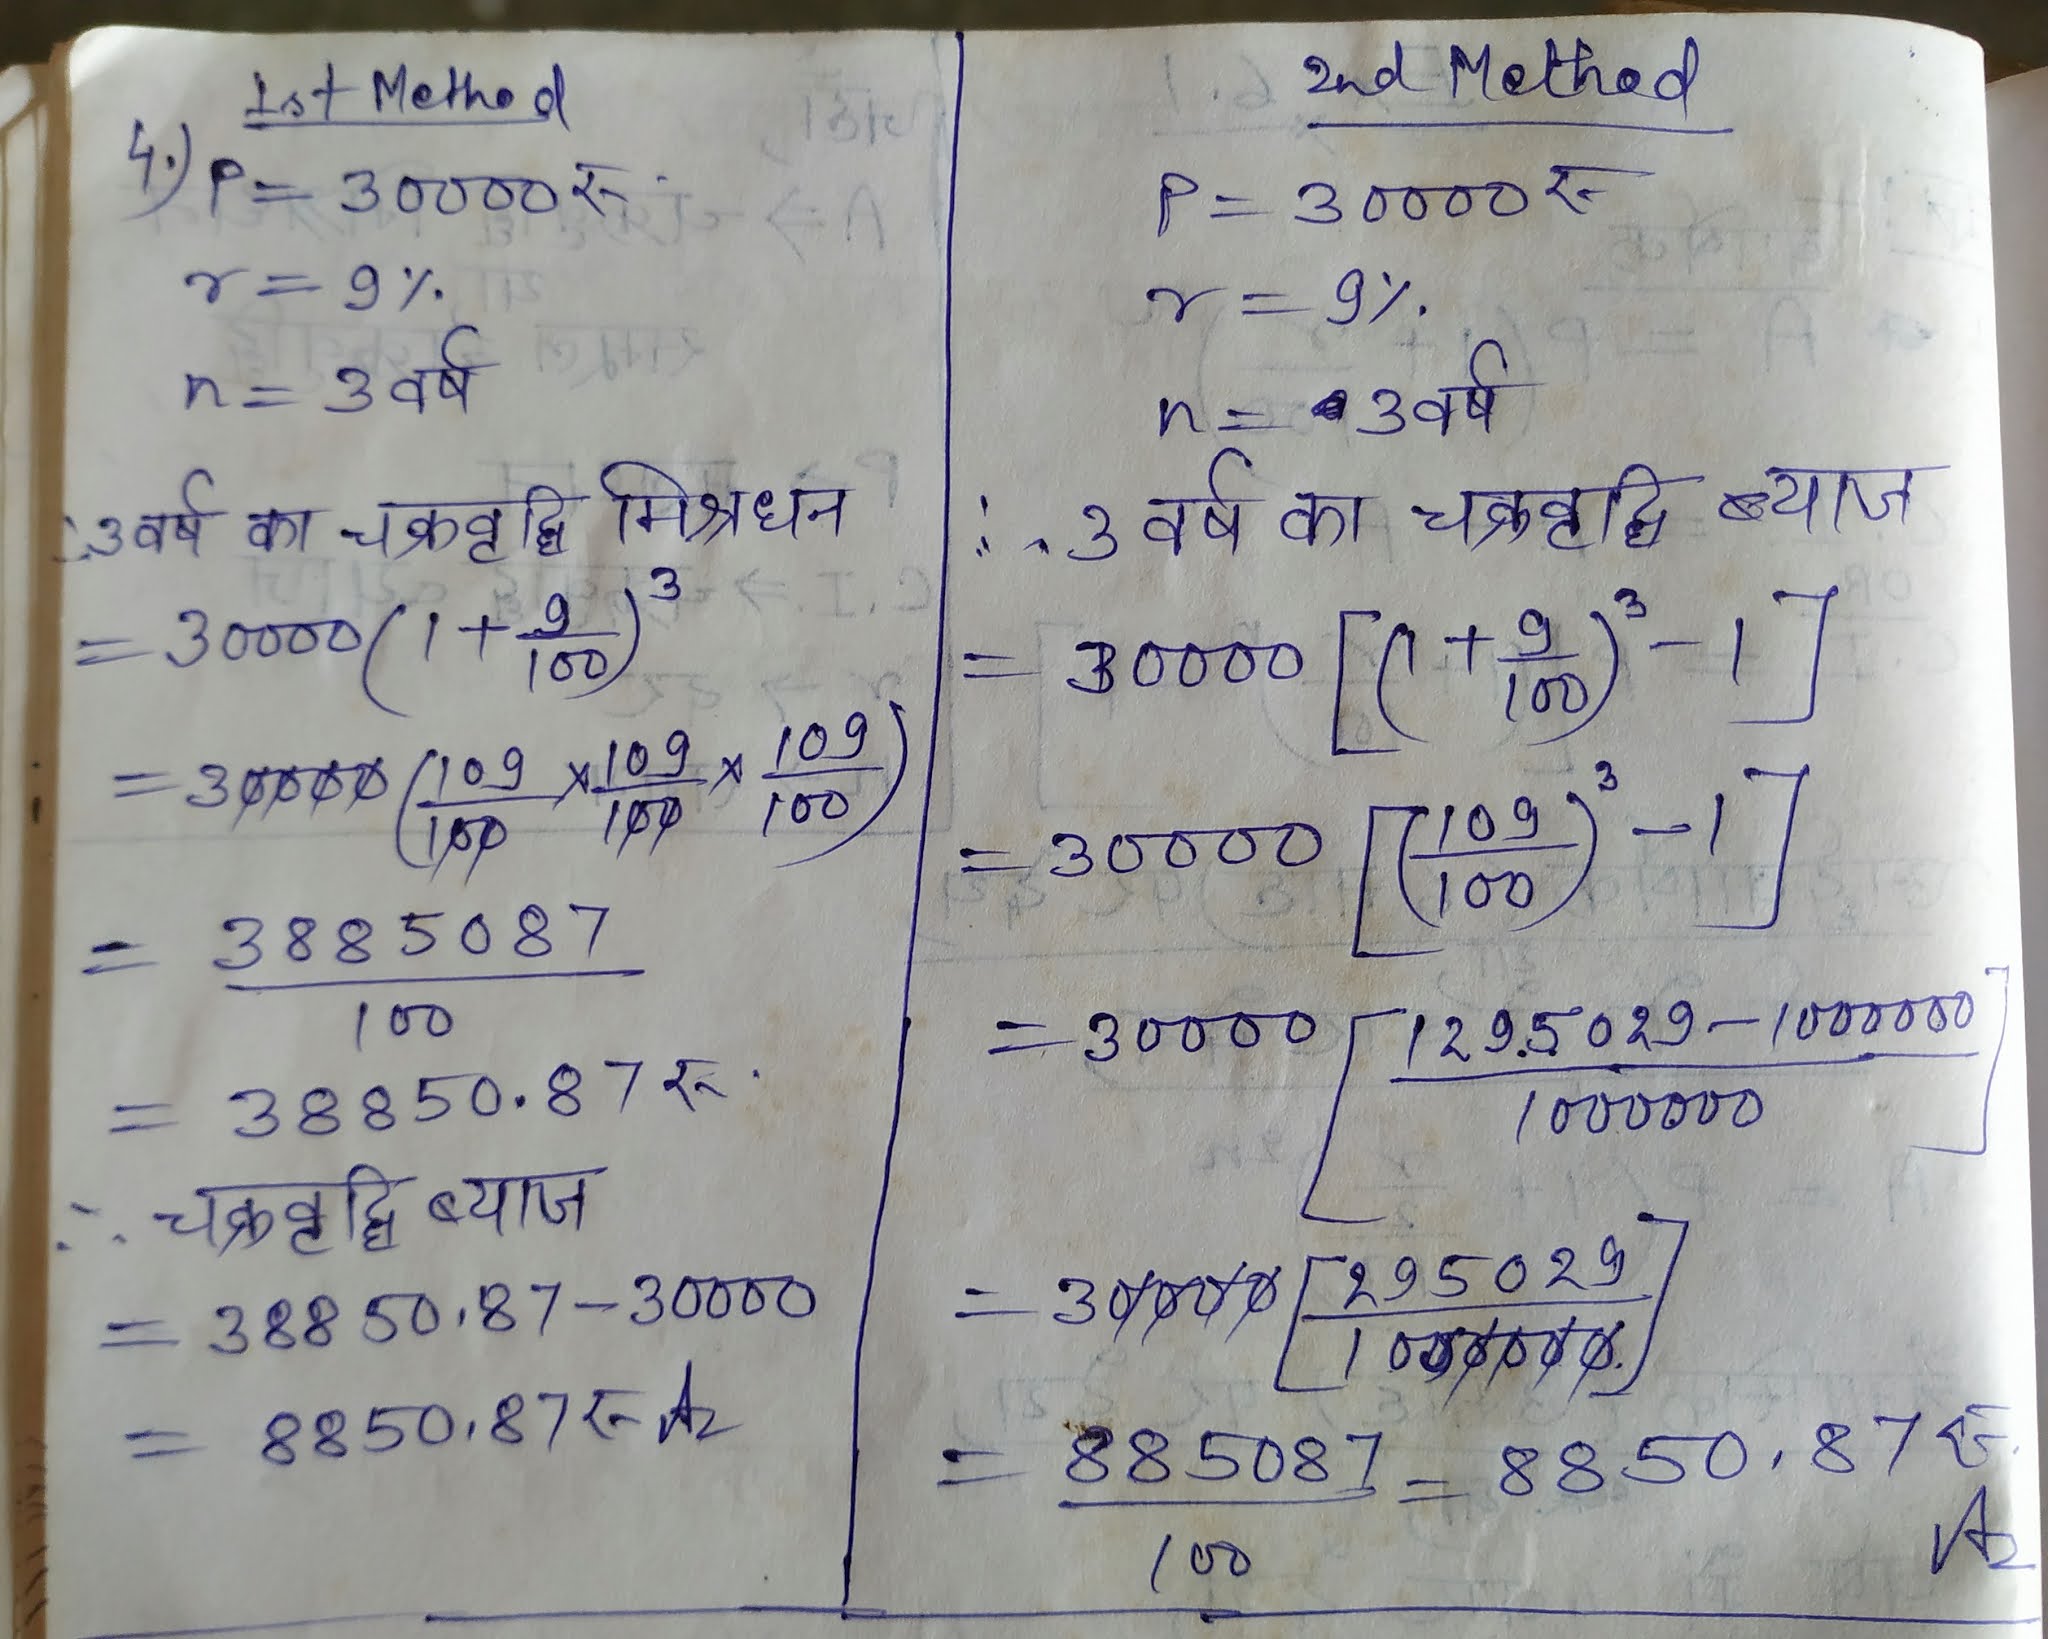 1st Method
4.) P = 30000 रू.
r = 9%.
n = 3 वर्ष
∴ 3 वर्ष का चक्रवृद्धि मिश्रधन
= 30000 (1 + 9/100)³
= 30000 (109/100 × 109/100 × 109/100)
= 3885087/100
= 38850.87 रू.
∴ चक्रवृद्धि ब्याज
= 38850.87 - 30000
= 8850.87 रू A
2nd Method
P = 30000 रू
r = 9%.
n = 3 वर्ष
∴ 3 वर्ष का चक्रवृद्धि ब्याज
= 30000 [(1 + 9/100)³ - 1]
= 30000 [(109/100)³ - 1]
= 30000 [1295029 - 1000000/1000000]
= 30000 [295029/1000000]
= 885087/100 = 8850.87 रू.
A